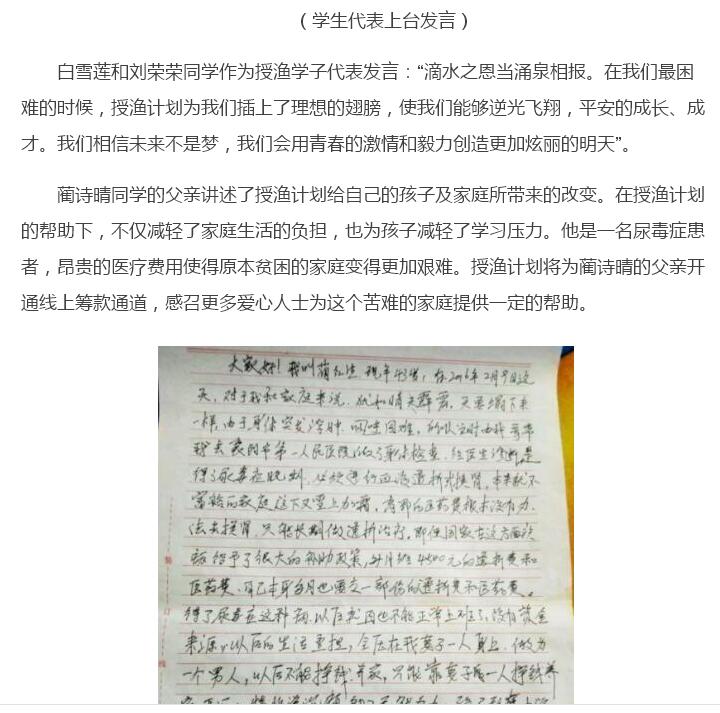 （学生代表上台发言）
白雪莲和刘荣荣同学作为授渔学子代表发言：“滴水之恩当涌泉相报。在我们最困
难的时候，授渔计划为我们插上了理想的翅膀，使我们能够逆光飞翔，平安的成长、成
才。我们相信未来不是梦，我们会用青春的激情和毅力创造更加炫丽的明天”。
蔺诗晴同学的父亲讲述了授渔计划给自己的孩子及家庭所带来的改变。在授渔计划
的帮助下，不仅减轻了家庭生活的负担，也为孩子减轻了学习压力。他是一名尿毒症患
者，昂贵的医疗费用使得原本贫困的家庭变得更加艰难。授渔计划将为蔺诗晴的父亲开
通线上筹款通道，感召更多爱心人士为这个苦难的家庭提供一定的帮助。
大家好！我叫蔺红 现年43岁，在2016年2月9日这
天，对于我和家庭来说，犹如晴天霹雳，天要塌下来
一样，由于身体突发浮肿、呼吸困难，所以当时由我哥带
我去 市第一人民医院做了身体检查，经医生诊断是
得了尿毒症晚期，必须进行血液透析或换肾，本来就不
富裕的家庭这下又雪上加霜，高昂的医药费根本没有办
法去换肾，只能长期做透析治疗，即使国家在这方面政
策给予了很大的补助政策，每月 4500元的透析费和
医药费，自己本身每月也要交一部份的透析费和医药费。
得了尿毒症这种病，以后 也不能正常上班了，没有资金
来源，以后的生活重担，全压在我妻子一人身上，做为
一个男人，以后不能挣钱养家，只能靠妻子 一人挣钱养